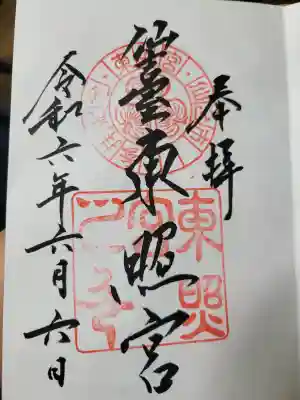 奉拝
仙臺東照宮
令和六年六月六日
東照